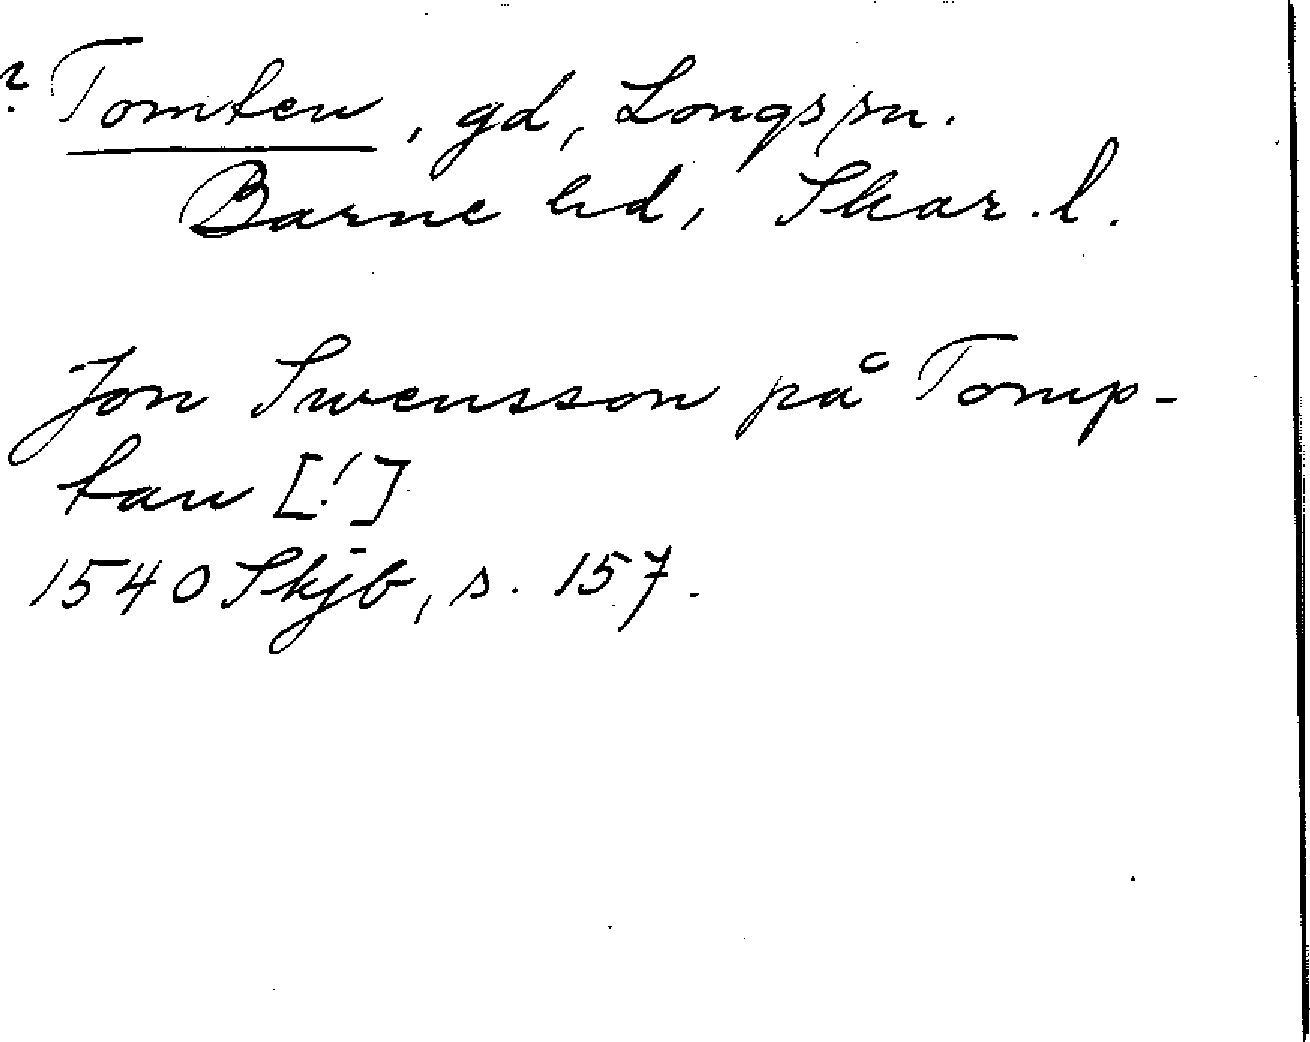 ? Tomten, gd, Longs sn.
Barne hd, Skar. l.
Jon Swensson på Tomp-
tan [!]
1540 Skjb, s. 157.